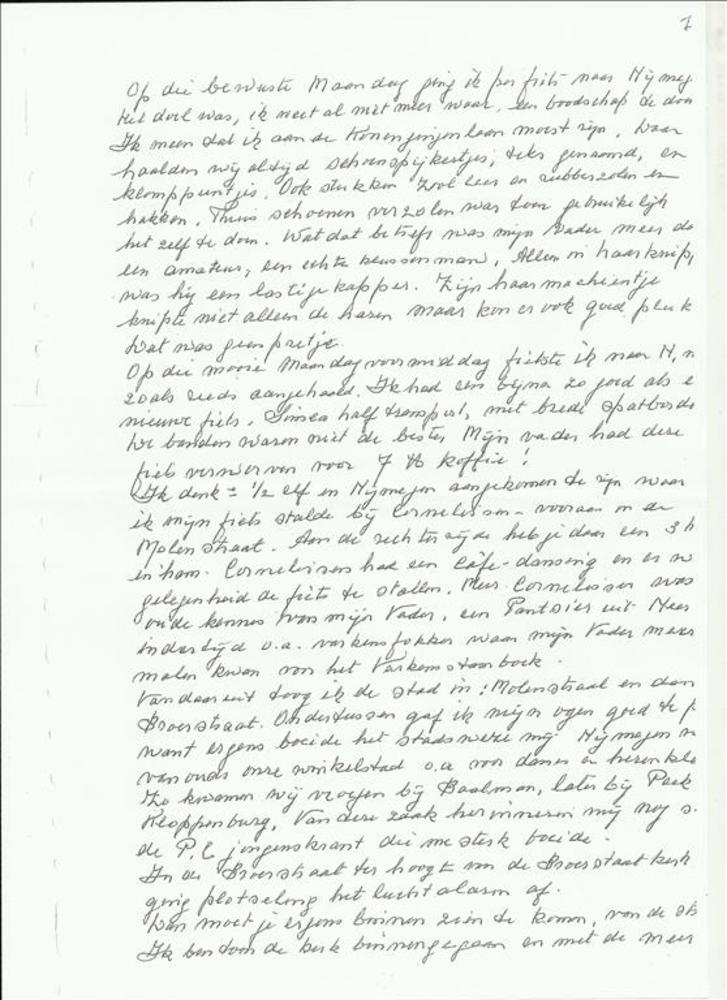 1
Op die bewuste Maandag ging ik per fiets naar Nijmeg
Het doel was, ik weet al niet meer waar, een boodschap te doen
Ik meen dat ik aan de Koninginnenlaan moest zijn. Daar
haalden wij altijd schoenspijkertjes, teks genaamd, en
klomppuntjes. Ook stukken zool leer en rubberzolen en
hakken. Thuis schoenen verzolen was toen gebruikelijk
het zelf te doen. Wat dat betreft was mijn Vader meer da
een amateur, een echte keussenman, Alleen in haarknip,
was hij een lastige kapper. Zijn haarmachientje
knipte niet alleen de haren maar kon er ook goed pluk
Dat was geen pretje.
Op die mooie Maandagvoormiddag fietste ik naar N, n
zoals reeds aangehaald. Ik had een bijna zo goed als e
nieuwe fiets, Simca half transport, met brede spatborde
De banden waren niet de beste. Mijn vader had deze
fiets verworven voor 7 lb koffie!
Ik denk ± 1/2 elf in Nijmegen aangekomen te zijn waar
ik mijn fiets stalde bij Cornelissen - vooraan in de
Molenstraat. Aan de rechterzijde heb je daar een
inham. Cornelissen had een Café-dansing en er w
gelegenheid de fiets te stallen. Mner. Cornelissen was
oude kennis van mijn Vader, een uit
indertijd o.a. varkensfokker waar mijn Vader meer
malen kwam voor het Varkensstamboek.
Van daar uit toog ik de stad in: Molenstraat en dan
Broerstraat. Ondertussen gaf ik mijn ogen goed te
want ergens boeide het stadswezen mij. Nijmegen
van ouds onze winkelstad o.a. voor dames en herenkle
Zo kwamen wij vroeger bij Baalman, later bij Peek
Kloppenburg, Van deze zaak herinneren mij nog s.
de P.C jongenskrant die me sterk boeide.
In de Broerstraat ter hoogte van de Broerstraatkerk
ging plotseling het luchtalarm af.
Dan moet je ergens binnen zien te komen, van de st
Ik ben toen de kerk binnengegaan en met de meer